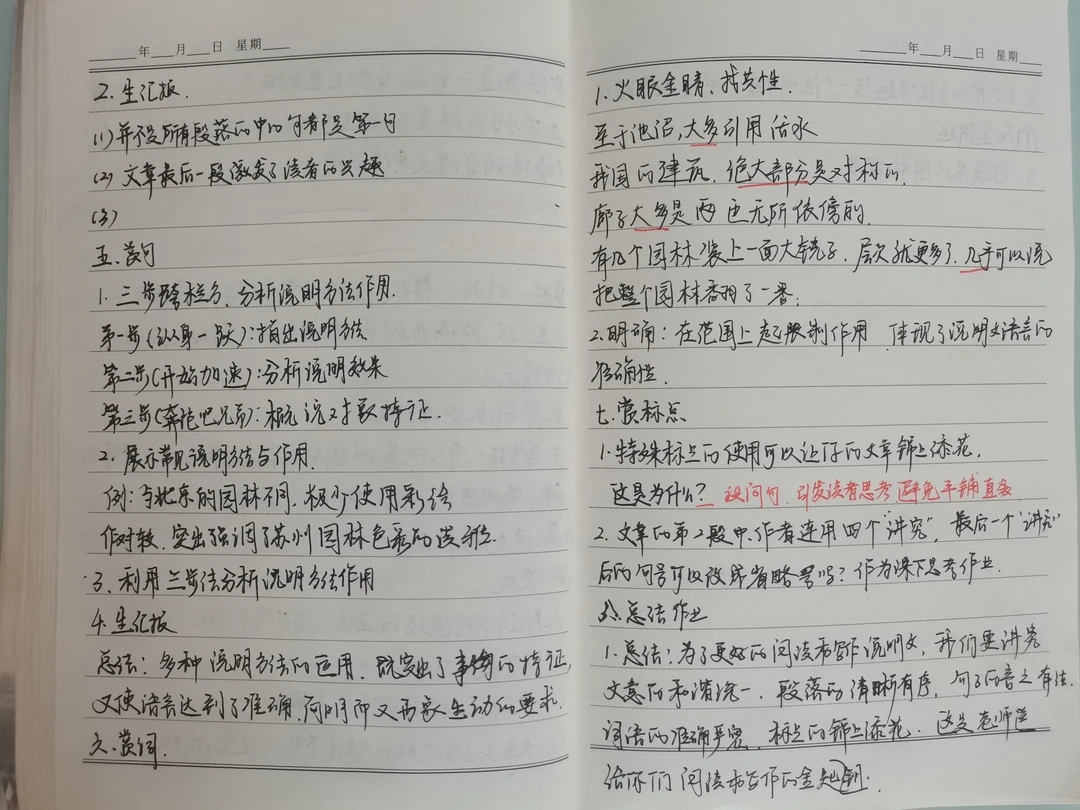 年 月 日 星期
2.生汇报.
(1)并不是所有段落的中心句都是第一句
(2)文章最后一段激发了读者的兴趣
(3)
五.赏句
1.三步跨栏法,分析说明方法作用.
第一步(纵身一跃):指出说明方法
第二步(开始加速):分析说明效果
第三步(奔跑吧兄弟):概况说对象特征.
2.展示常见说明方法与作用.
例:与北京的园林不同,极少使用彩绘
作对较,突出强调了苏州园林色彩的淡雅.
3.利用三步法分析说明方法作用
4.生汇报
总结:多种说明方法的运用.既突出了事物的特征,
又使语言达到了准确.简明而又形象生动的要求.
六.赏词.
年 月 日 星期
1.火眼金睛、找共性.
至于池沼,大多引用活水
我国的建筑,绝大部分是对称的.
廊子大多是两边无所依傍的.
有几个园林装上一面大镜子,层次就更多了,几乎可以说
把整个园林翻了一番.
2.明确:在范围上起限制作用 体现了说明文语言的
准确性.
七.赏标点
1.特殊标点的使用可以让你的文章锦上添花,
这是为什么? 设问句,引发读者思考 避免平铺直叙
2.文章的第2段中,作者连用四个“讲究”,最后一个“讲究”
后的句号可以改成省略号吗?作为课下思考作业.
八.总结作业
1.总结:为了更好的阅读和写作说明文,我们要讲究
文意的和谐统一、段落的清晰有序,句子的言之有法.
词语的准确严密,标点的锦上添花.这是老师送
给你们阅读和写作的金钥匙.